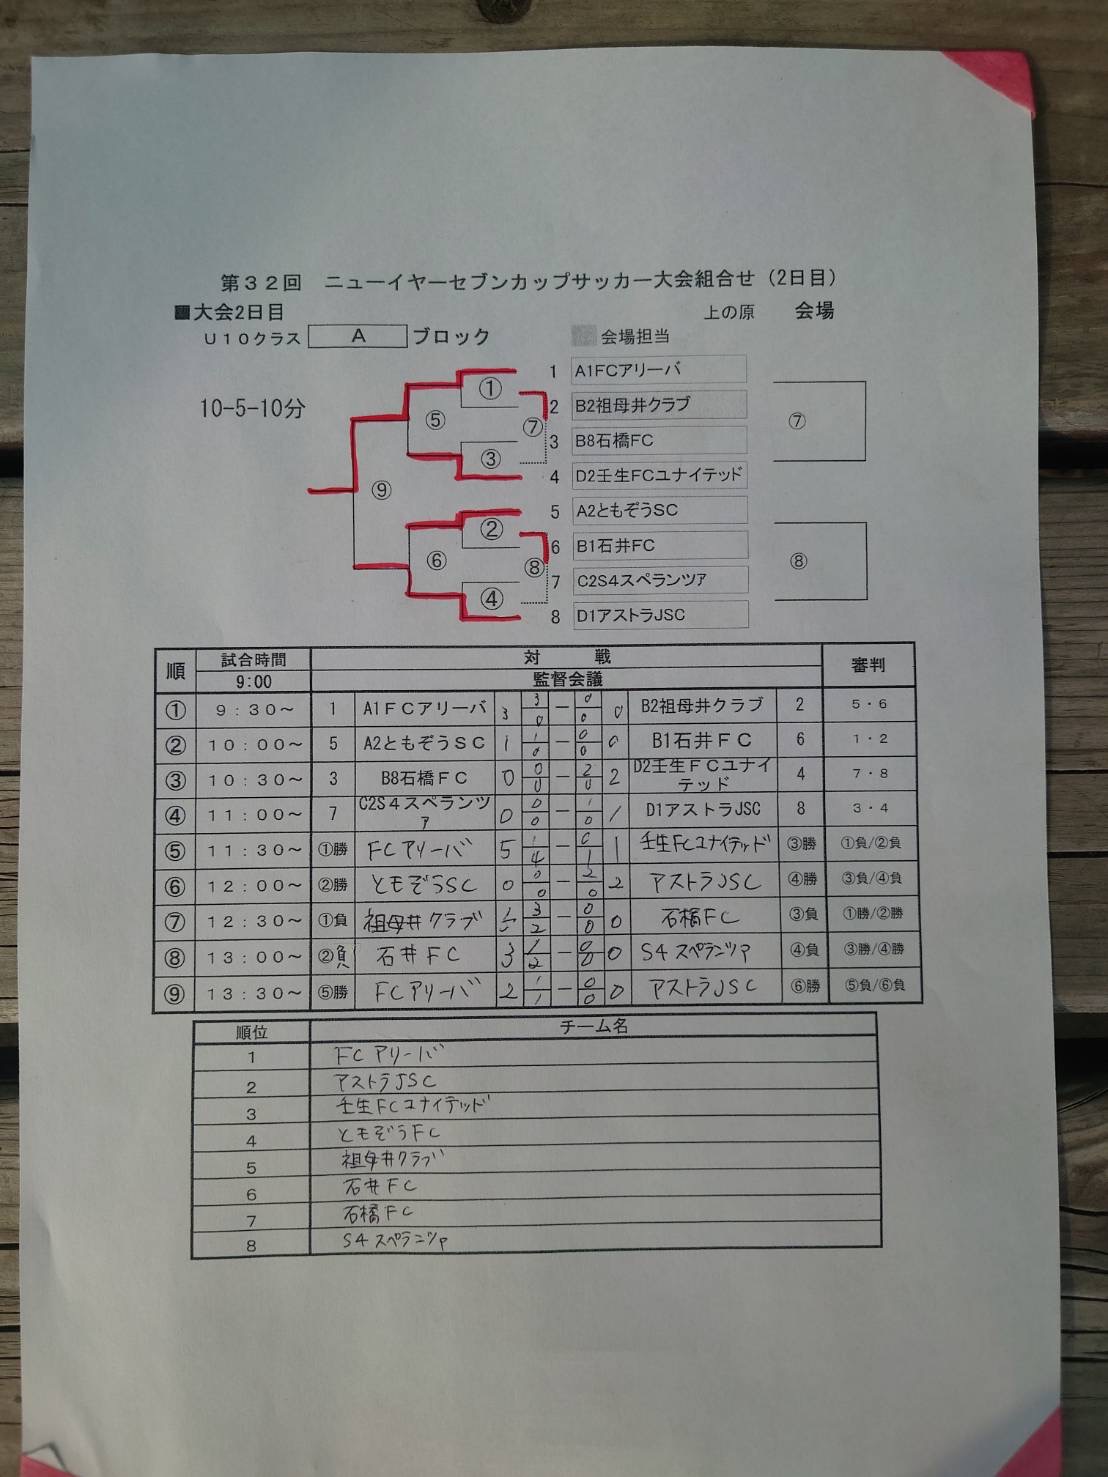 第３２回　ニューイヤーセブンカップサッカー大会組合せ（2日目）
■大会2日目　上の原　会場
Ｕ１０クラス　A　ブロック　会場担当
10-5-10分
1 A1FCアリーバ
2 B2祖母井クラブ
3 B8石橋FC
4 D2壬生FCユナイテッド
5 A2ともぞうSC
6 B1石井FC
7 C2S4スペランツァ
8 D1アストラJSC
① ② ③ ④ ⑤ ⑥ ⑦ ⑧ ⑨
⑦
⑧
順　試合時間　対　戦　審判
9:00　監督会議
① 9：30～ 1 A1ＦＣアリーバ 3 3 0 － 0 0 0 B2祖母井クラブ 2 5・6
② 10：00～ 5 A2ともぞうＳＣ 1 1 0 － 0 0 0 B1石井ＦＣ 6 1・2
③ 10：30～ 3 B8石橋ＦＣ 0 0 0 － 2 0 2 D2壬生ＦＣユナイテッド 4 7・8
④ 11：00～ 7 C2S４スペランツァ 0 0 0 － 1 0 1 D1アストラJSC 8 3・4
⑤ 11：30～ ①勝 FCアリーバ 5 1 4 － 0 1 1 壬生FCユナイテッド ③勝 ①負/②負
⑥ 12：00～ ②勝 ともぞうSC 0 0 0 － 2 0 2 アストラJSC ④勝 ③負/④負
⑦ 12：30～ ①負 祖母井クラブ 5 3 2 － 0 0 0 石橋FC ③負 ①勝/②勝
⑧ 13：00～ ②負 石井FC 3 1 2 － 0 0 0 S4スペランツァ ④負 ③勝/④勝
⑨ 13：30～ ⑤勝 FCアリーバ 2 1 1 － 0 0 0 アストラJSC ⑥勝 ⑤負/⑥負
順位　チーム名
1 FCアリーバ
2 アストラJSC
3 壬生FCユナイテッド
4 ともぞうFC
5 祖母井クラブ
6 石井FC
7 石橋FC
8 S4スペランツァ